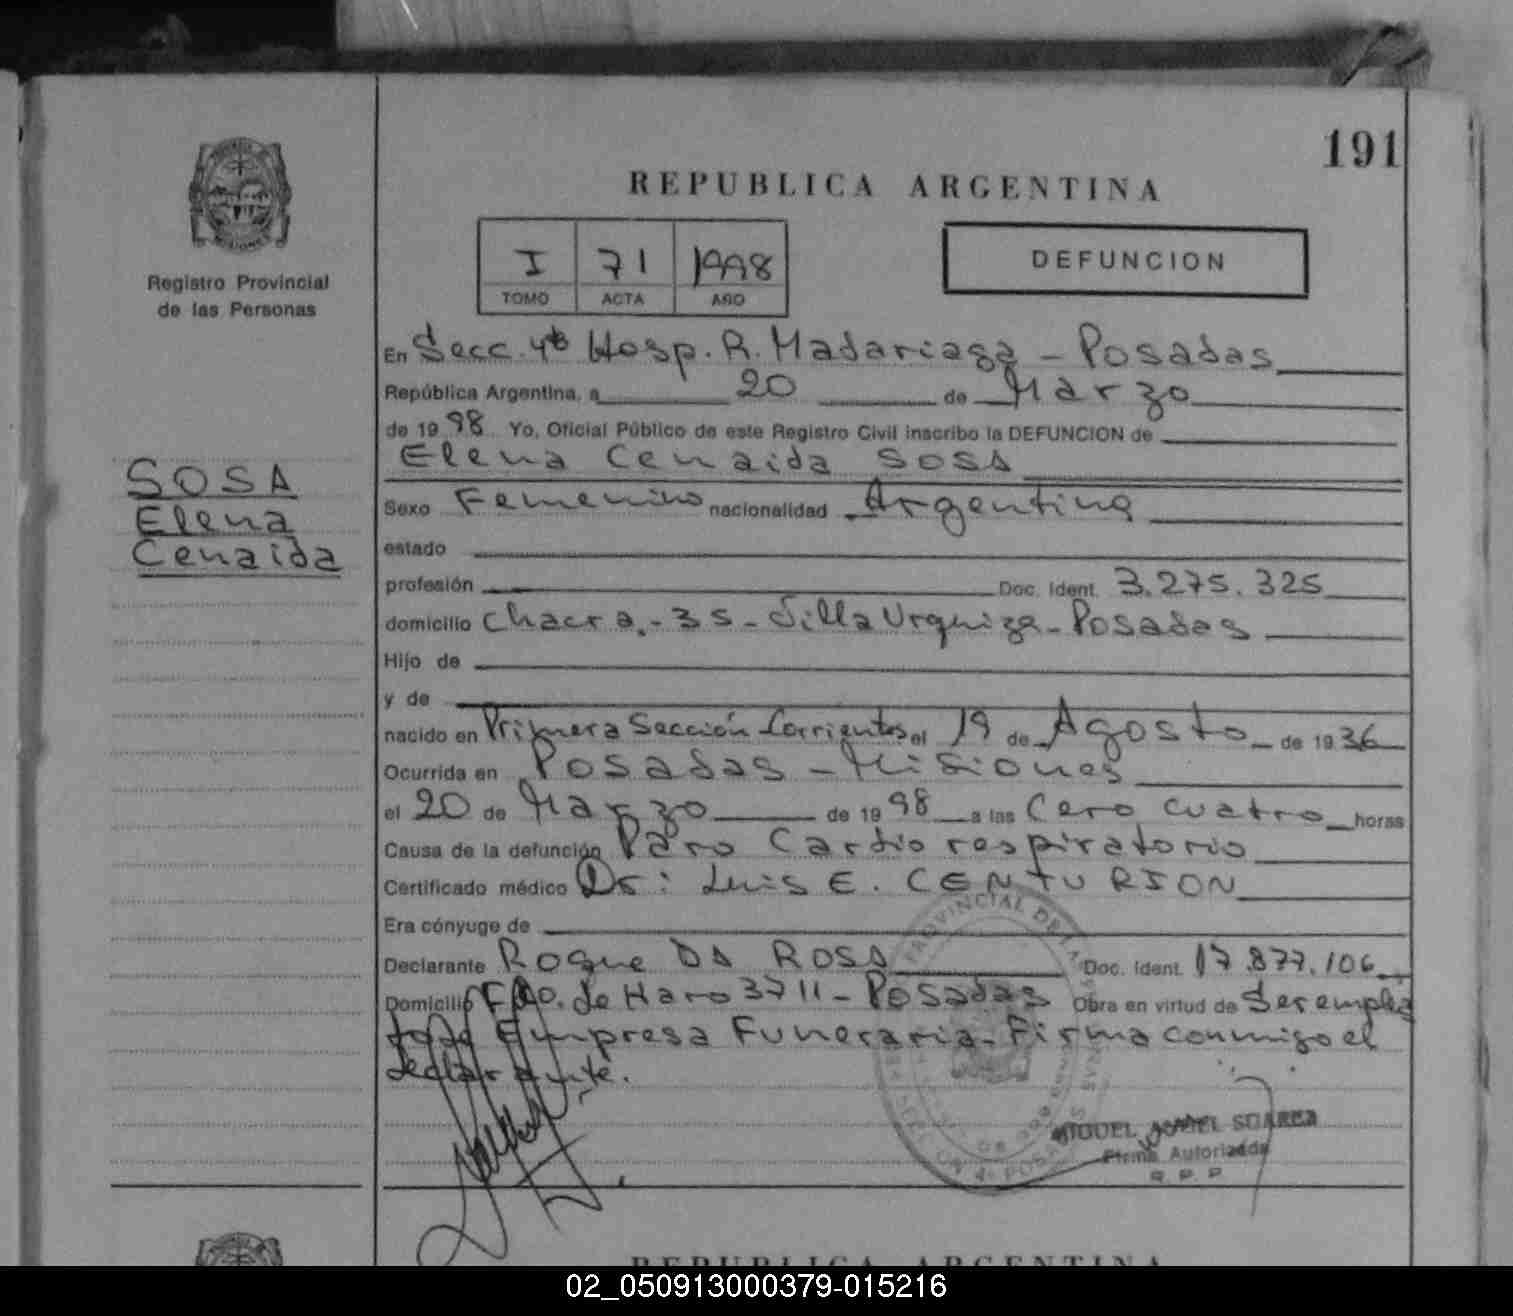 191
REPUBLICA ARGENTINA
Registro Provincial
de las Personas
I 71 1998
TOMO ACTA AÑO
DEFUNCION
En Secc. 4ta Hosp. R. Madariaga - Posadas
República Argentina, a 20 de Marzo
de 19 98 Yo, Oficial Público de este Registro Civil inscribo la DEFUNCION de
Elena Cenaida SOSA
SOSA
Elena
Cenaida
Sexo Femenino nacionalidad Argentina
estado
profesión Doc. Ident. 3.275.325
domicilio Chacra.- 35 - Villa Urquiza - Posadas
Hijo de
y de
nacido en Primera Sección Corrientes el 19 de Agosto de 19 36
Ocurrida en Posadas - Misiones
el 20 de Marzo de 19 98 a las Cero cuatro horas
Causa de la defunción Paro Cardio respiratorio
Certificado médico Dr: Luis E. CENTURION
Era cónyuge de
Declarante Roque DA ROSA Doc. Ident. 17.877.106
Domicilio Fdo. de Haro 3711 - Posadas Obra en virtud de Ser emplea
do de Empresa Funeraria - Firma conmigo el
declarante.
MIGUEL SUAREZ
Firma Autorizada
R. P. P.
REPUBLICA ARGENTINA
02_050913000379-015216